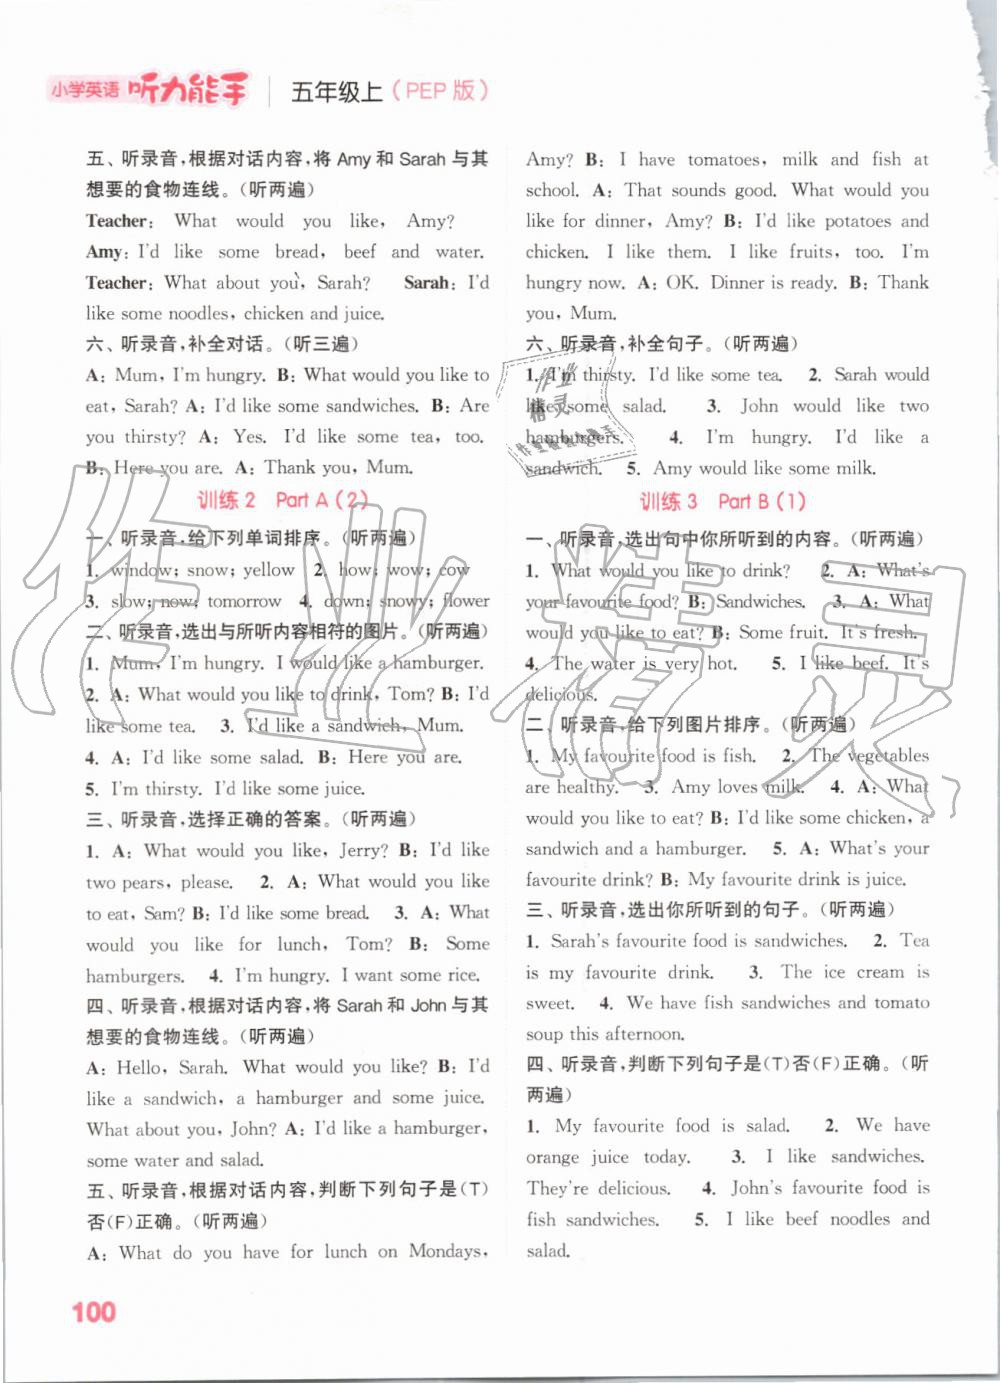 小学英语 听力能手 五年级上(PEP版)
五、听录音,根据对话内容,将 Amy 和 Sarah 与其
想要的食物连线。(听两遍)
Teacher: What would you like, Amy?
Amy: I'd like some bread, beef and water.
Teacher: What about you, Sarah? Sarah: I'd
like some noodles, chicken and juice.
六、听录音,补全对话。(听三遍)
A: Mum, I'm hungry. B: What would you like to
eat, Sarah? A: I'd like some sandwiches. B: Are
you thirsty? A: Yes. I'd like some tea, too.
B: Here you are. A: Thank you, Mum.
训练2 Part A(2)
一、听录音,给下列单词排序。(听两遍)
1. window; snow; yellow 2. how; wow; cow
3. slow; now; tomorrow 4. down; snowy; flower
二、听录音,选出与所听内容相符的图片。(听两遍)
1. Mum, I'm hungry. I would like a hamburger.
2. A: What would you like to drink, Tom? B: I'd
like some tea. 3. I'd like a sandwich, Mum.
4. A: I'd like some salad. B: Here you are.
5. I'm thirsty. I'd like some juice.
三、听录音,选择正确的答案。(听两遍)
1. A: What would you like, Jerry? B: I'd like
two pears, please. 2. A: What would you like
to eat, Sam? B: I'd like some bread. 3. A: What
would you like for lunch, Tom? B: Some
hamburgers. 4. I'm hungry. I want some rice.
四、听录音,根据对话内容,将 Sarah 和 John 与其
想要的食物连线。(听两遍)
A: Hello, Sarah. What would you like? B: I'd
like a sandwich, a hamburger and some juice.
What about you, John? A: I'd like a hamburger,
some water and salad.
五、听录音,根据对话内容,判断下列句子是(T)
否(F)正确。(听两遍)
A: What do you have for lunch on Mondays,
Amy? B: I have tomatoes, milk and fish at
school. A: That sounds good. What would you
like for dinner, Amy? B: I'd like potatoes and
chicken. I like them. I like fruits, too. I'm
hungry now. A: OK. Dinner is ready. B: Thank
you, Mum.
六、听录音,补全句子。(听两遍)
1. I'm thirsty. I'd like some tea. 2. Sarah would
like some salad. 3. John would like two
hamburgers. 4. I'm hungry. I'd like a
sandwich. 5. Amy would like some milk.
训练3 Part B(1)
一、听录音,选出句中你所听到的内容。(听两遍)
1. What would you like to drink? 2. A: What's
your favourite food? B: Sandwiches. 3. A: What
would you like to eat? B: Some fruit. It's fresh.
4. The water is very hot. 5. I like beef. It's
delicious.
二、听录音,给下列图片排序。(听两遍)
1. My favourite food is fish. 2. The vegetables
are healthy. 3. Amy loves milk. 4. A: What
would you like to eat? B: I'd like some chicken, a
sandwich and a hamburger. 5. A: What's your
favourite drink? B: My favourite drink is juice.
三、听录音,选出你所听到的句子。(听两遍)
1. Sarah's favourite food is sandwiches. 2. Tea
is my favourite drink. 3. The ice cream is
sweet. 4. We have fish sandwiches and tomato
soup this afternoon.
四、听录音,判断下列句子是(T)否(F)正确。(听
两遍)
1. My favourite food is salad. 2. We have
orange juice today. 3. I like sandwiches.
They're delicious. 4. John's favourite food is
fish sandwiches. 5. I like beef noodles and
salad.
100
作业精灵
作业
精灵